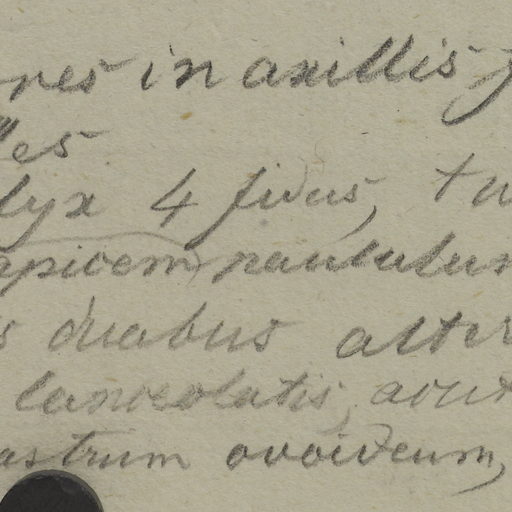 res in axillis f
les
lyx 4 fidus, tu
apicem paululum
s duabus alter
lanceolatis, acut
astrum ovoideum,